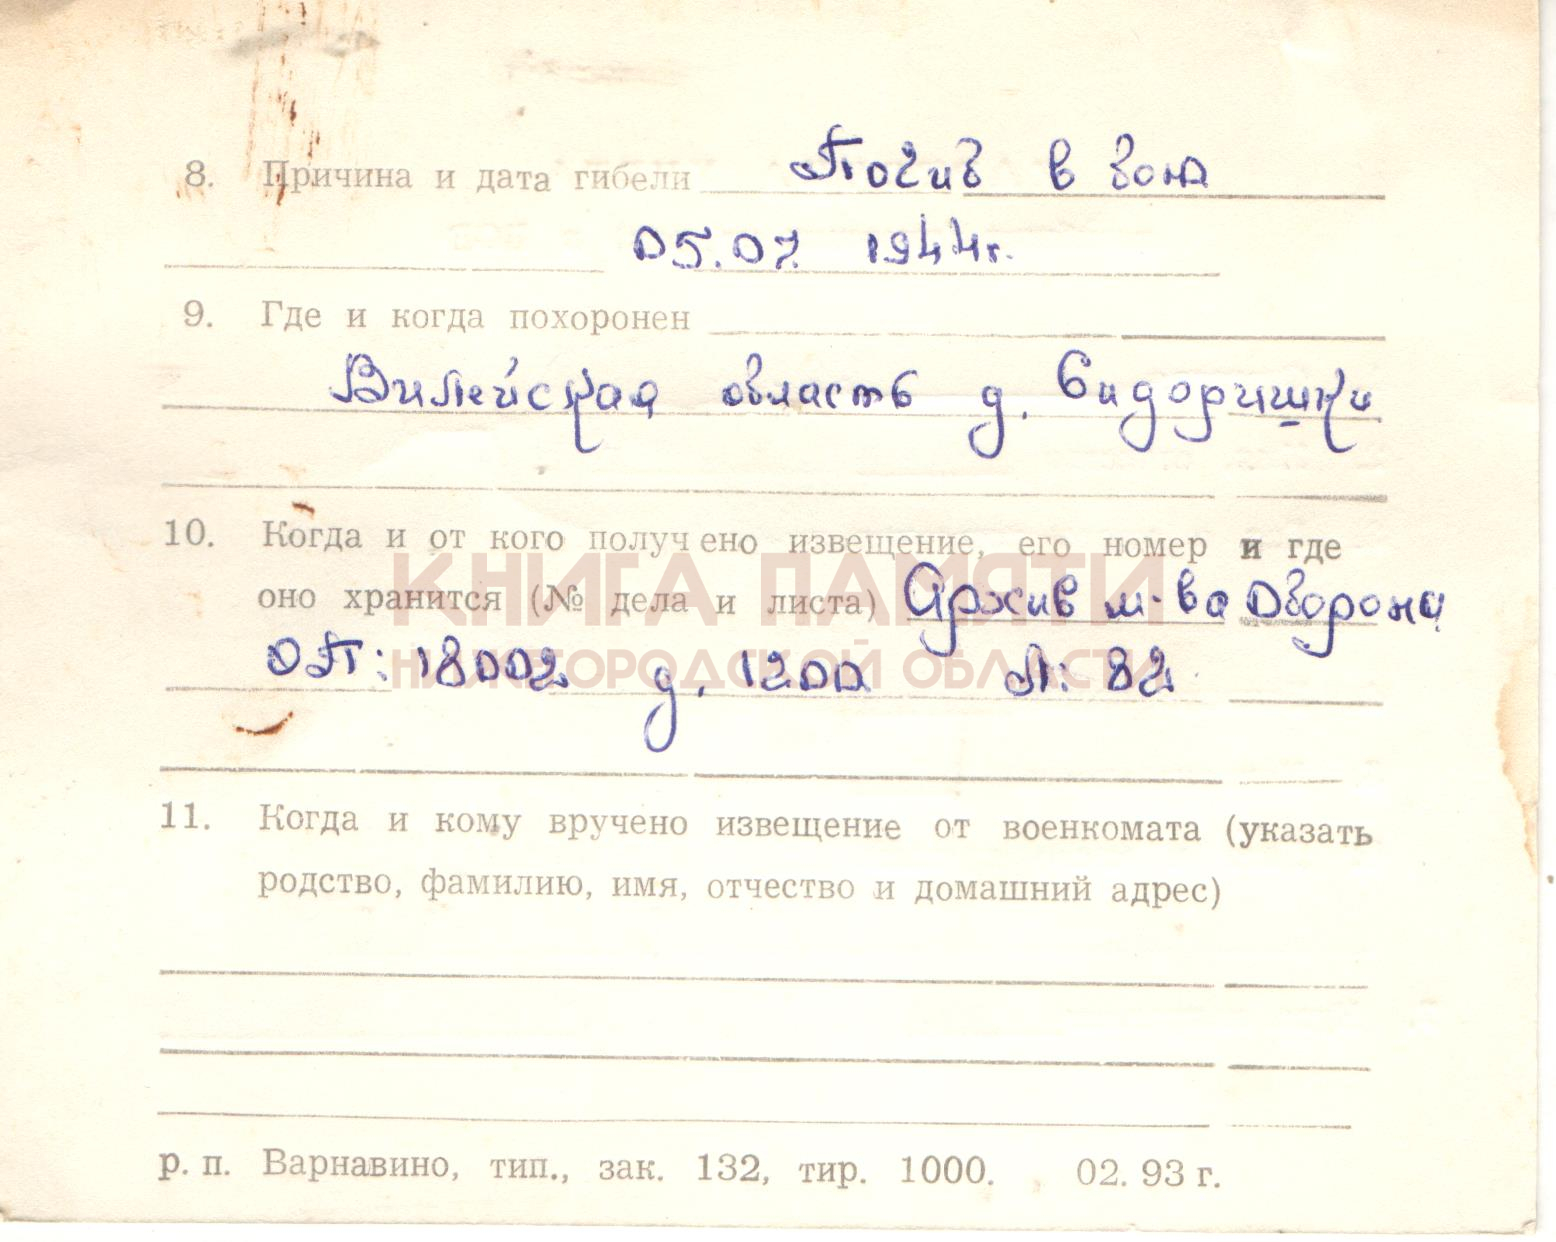 8. Причина и дата гибели Погиб в бою
05.07. 1944г.
9. Где и когда похоронен
Вилейская область д. Сидоришки
10. Когда и от кого получено извещение, его номер и где
оно хранится (№ дела и листа) Архив м-ва Оборона
КНИГА ПАМЯТИ
ОП: 18002 д. 1200 Л: 82
НИЖЕГОРОДСКОЙ ОБЛАСТИ
11. Когда и кому вручено извещение от военкомата (указать
родство, фамилию, имя, отчество и домашний адрес)
р. п. Варнавино, тип., зак. 132, тир. 1000. 02. 93 г.